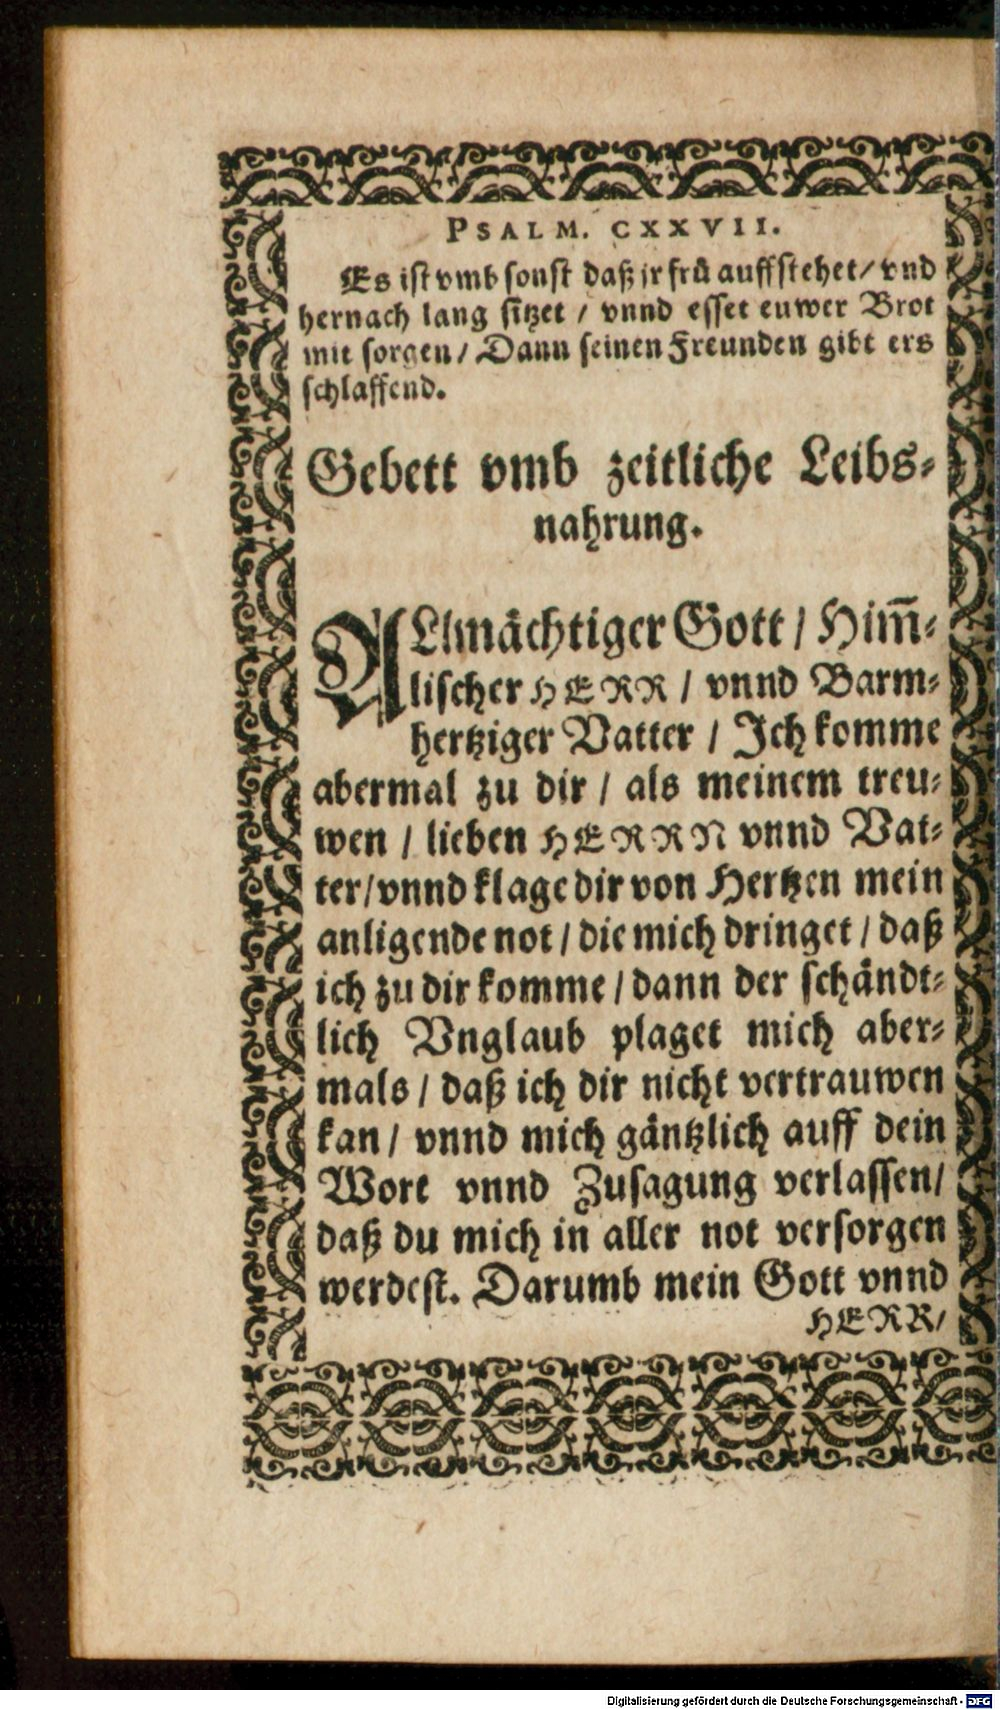 PSALM. CXXVII.
Es ist vmb sonst daß jr frü auffstehet/ vnd
hernach lang sitzet / vnnd esset euwer Brot
mit sorgen/ Dann seinen Freunden gibt ers
schlaffend.
Gebett vmb zeitliche Leibs⸗
nahrung.
ALlmächtiger Gott / Him̅⸗
lischer HERR / vnnd Barm⸗
hertziger Vatter / Ich komme
abermal zu dir / als meinem treu⸗
wen / lieben HERRN vnnd Vat⸗
ter/vnnd klage dir von Hertzen mein
anligende not / die mich dringet / daß
ich zu dir komme / dann der schändt⸗
lich Vnglaub plaget mich aber⸗
mals / daß ich dir nicht vertrauwen
kan / vnnd mich gäntzlich auff dein
Wort vnnd Zusagung verlassen/
daß du mich in aller not versorgen
werdest. Darumb mein Gott vnnd
HERR/
Digitalisierung gefördert durch die Deutsche Forschungsgemeinschaft - DFG